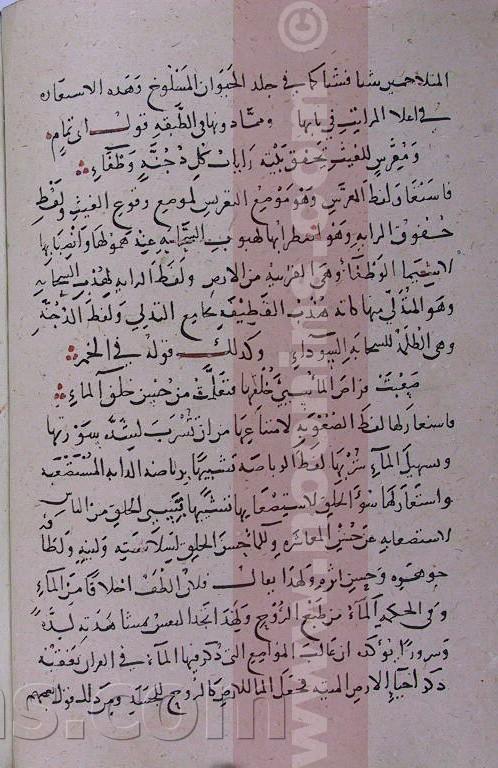 المتلاحمين شيا فشيا كما في جلد الحيوان المسلوخ وهذه الاستعاره
في اعلا المراتب في بابها ومما دونها في الطبقه قول ابي تمام
ومعرس للغيث تخفق بينه رايات كل دجنة وطفاء
فاستعار لفظ المعرس وهو موضع التعريس لموضع وقوع الغيث ولفظ
خفوق الرايه وهو اضطرابها لهبوب السحابه عند هولها وانصبابها
لاسيما الوطفاء وهي القريبه من الارض ولفظ الرايه لهدب السحابه
وهو المتدلي منها كانه هدب القطيفه بجامع التدلي ولفظ الدجنه
وهي الظلمه للسحابه السوداء وكذلك قوله في الخمر
صعبت فراض الماء سيئ خلقها فتعلمت من حسن خلق الماء
فاستعار لها لفظ الصعوبه لامتناعها من ان تشرب لشده سورتها
وتسهيل الماء شربها لفظ الرياضه تشبيها برياضه الدابه المستصعبه
واستعار لها سوء الخلق لاستصعابها تشبيها بسيئ الخلق من الناس
لاستصعابه عن حسن المعاشره وللماء حسن الخلق لسلاسته ولينه ولطافه
جوهره وحسن اثره ولهذا يقال فلان الطف اخلاقا من الماء
وفي الحكمه الماء من طبع الروح ولهذا تجد النفس بمشاهدته لذه
وسرورا يوكد ان غالب المواضع التي ذكر فيها الماء في القران تعقبه
ذكر احيا الارض الميته فجعل الماء للارض كالروح للجسد ومن ذلك قول بعضهم
www.mohsine.com